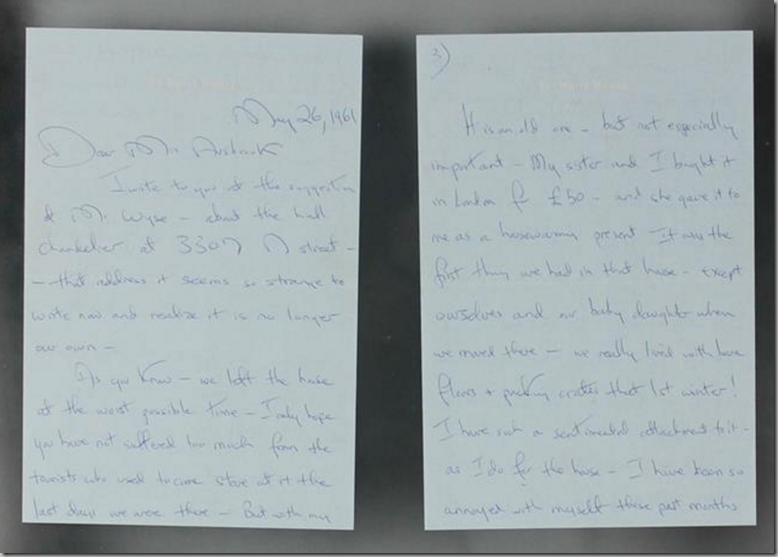 May 26, 1961
Dear Mr. Ausbrook
I write to you at the suggestion
of Mr. Wyse – about the hall
chandelier at 3307 N street –
– that address it seems so strange to
write now and realize it is no longer
our own –
As you know – we left the house
at the worst possible time – I only hope
you have not suffered too much from the
tourists who used to come stare at it the
last days we were there – But with my
3)
It is an old one – but not especially
important – My sister and I bought it
in London for £50 – and she gave it to
me as a housewarming present It was the
first thing we had in that house – except
ourselves and our baby daughter when
we moved there – we really lived with bare
floors + packing crates that 1st winter!
I have such a sentimental attachment to it –
as I do for the house – I have been so
annoyed with myself these past months